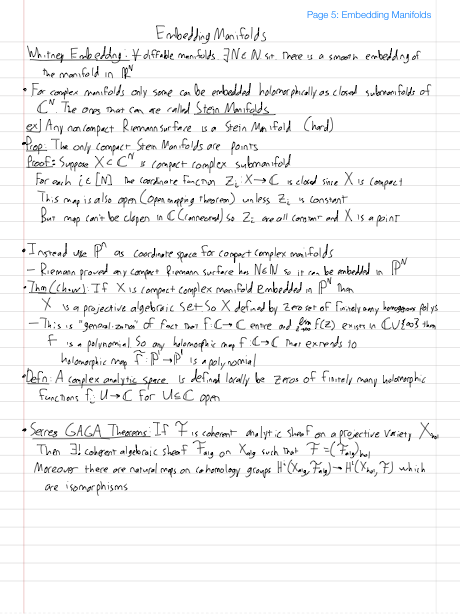 Page 5: Embedding Manifolds
Embedding Manifolds
Whitney Embedding: ∀ diffable manifolds ∃N∈ℕ s.t. there is a smooth embedding of
the manifold in ℝᴺ
• For complex manifolds only some can be embedded holomorphically as closed submanifolds of
ℂᴺ. The ones that can are called Stein Manifolds
ex) Any noncompact Riemann surface is a Stein Manifold (hard)
• Prop: The only compact Stein Manifolds are points
Proof: Suppose X⊂ℂᴺ is compact complex submanifold
For each i∈[N] the coordinate function Zᵢ: X→ℂ is closed since X is compact
This map is also open (open mapping theorem) unless Zᵢ is constant
But map can't be clopen in ℂ (connected) so Zᵢ are all constant and X is a point
• Instead use ℙⁿ as coordinate space for compact complex manifolds
– Riemann proved any compact Riemann surface has N∈ℕ so it can be embedded in ℙᴺ
• Thm (Chow): If X is compact complex manifold embedded in ℙᴺ then
X is a projective algebraic set so X defined by zero set of finitely many homogeneous polys
– This is "generalization" of fact that f:ℂ→ℂ entire and lim f(z) exists in ℂ∪{∞} then
f is a polynomial. So any holomorphic map f:ℂ→ℂ that extends to
holomorphic map f̃:ℙ¹→ℙ¹ is a polynomial
• Defn: A complex analytic space is defined locally be zeros of finitely many holomorphic
functions fᵢ: U→ℂ for U⊆ℂ open
• Serres GAGA Theorems: If ℱ is coherent analytic sheaf on a projective variety X
Then ∃! coherent algebraic sheaf ℱalg on Xalg such that ℱ=(ℱalg)hol
Moreover there are natural maps on cohomology groups Hⁱ(Xalg, ℱalg)→Hⁱ(Xhol, ℱ) which
are isomorphisms